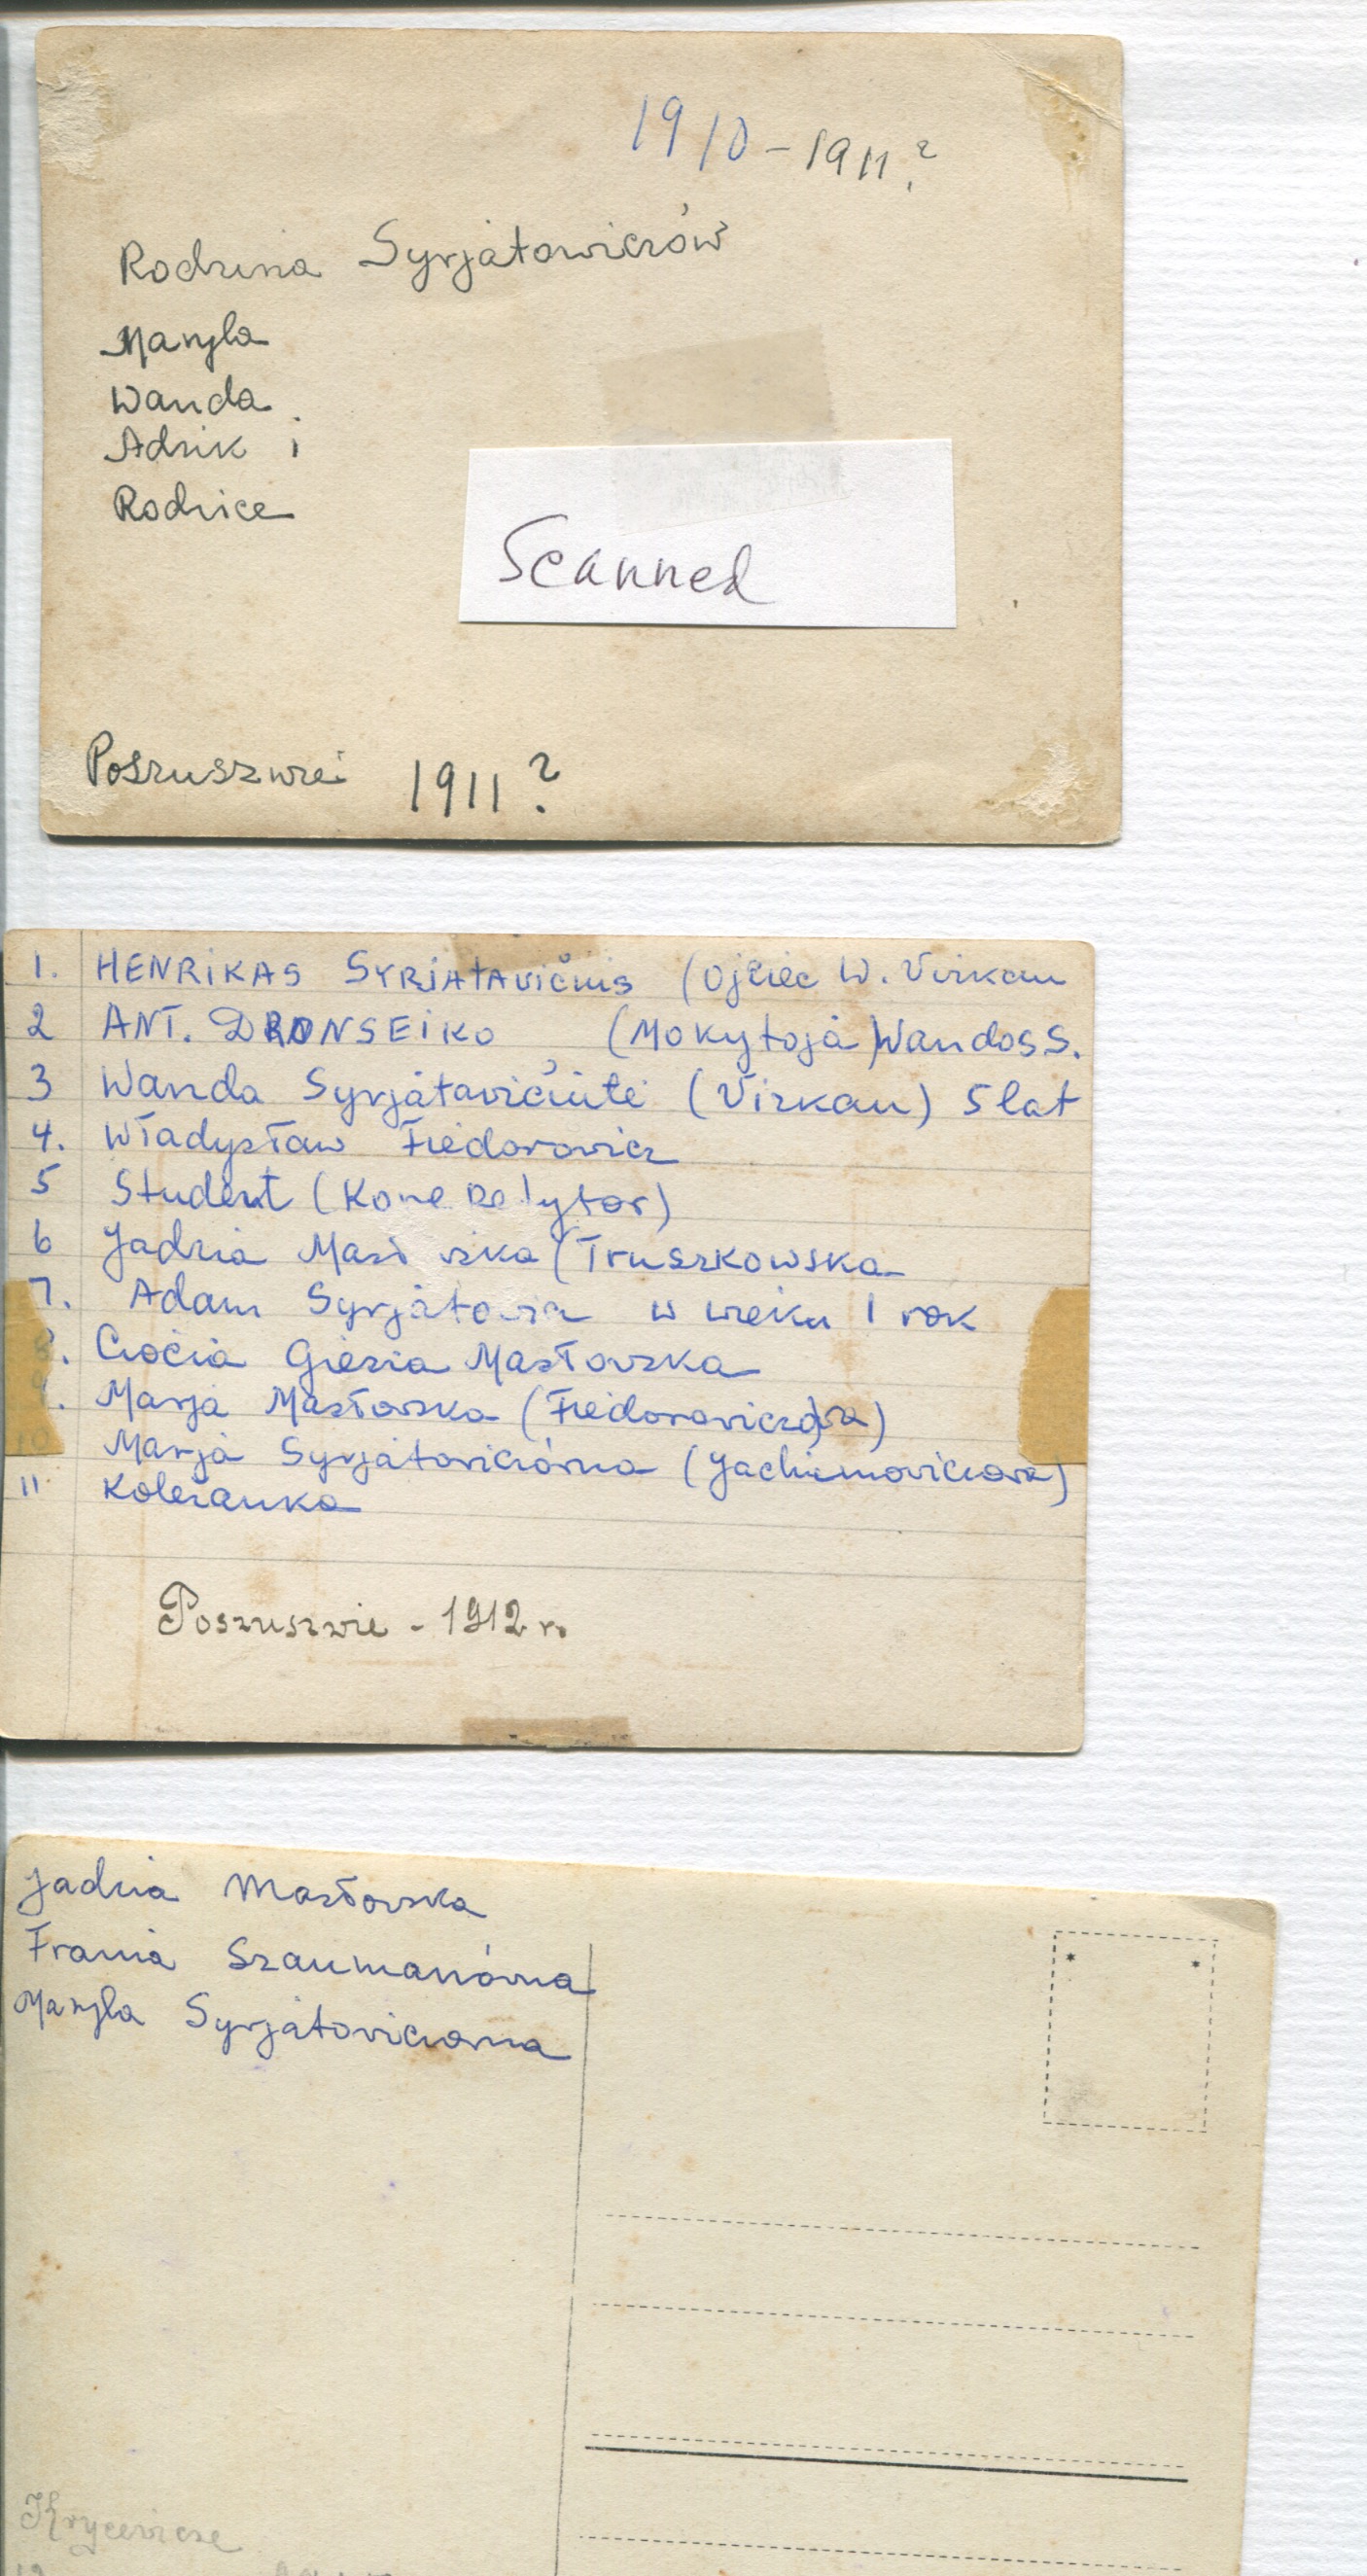 1910 - 1911?
Rodzina Syrjatowiczów
Maryla
Wanda
Adzik i
Rodzice
Scanned
Poszuszwei 1911?
1. HENRIKAS SYRJATAVIČIUS (Ojciec W. Virkau
2 ANT. DRONSEIKO (Mokytoja Wandos S.
3 Wanda Syrjatavičiúte (Virkau) 5 lat
4. Władysław Fiedorowicz
5 Student (Kore petytor)
6 Jadzia Masł wska (Truszkowska
7. Adam Syrjatowicz w wieku 1 rok
8. Ciocia Gienia Masłowska
9. Marja Masłowska (Fiedorowiczowa)
10 Marja Syrjatowiczówna (Jachimowiczowa)
11 Koleżanka
Poszuszwie - 1912 r.
Jadzia Masłowska
Frania Szaumanówna
Maryla Syrjatowiczowna
Krycewicze